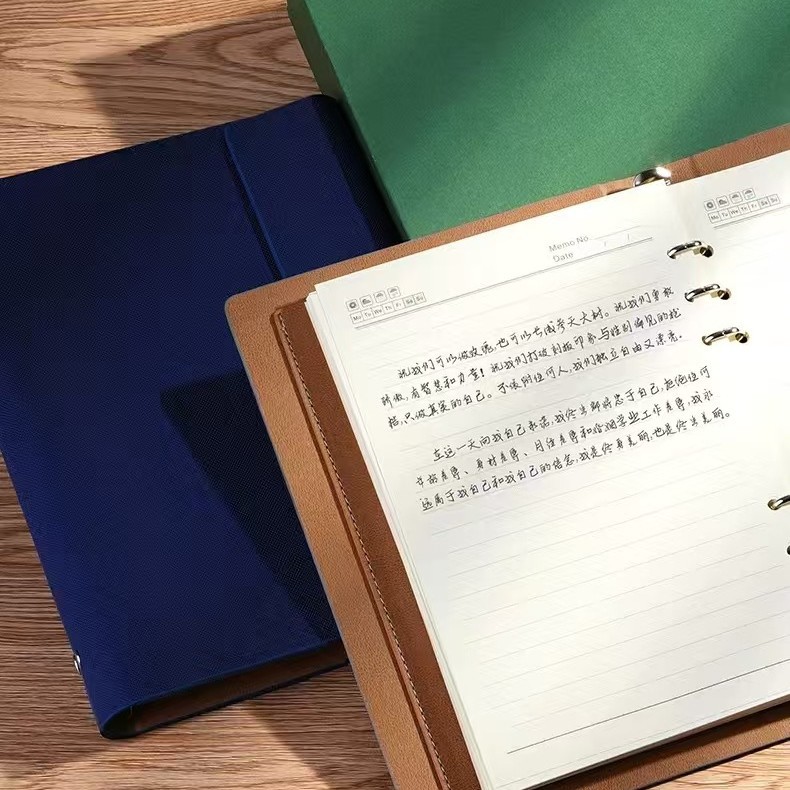 Memo No.
Date / /
Mo Tu We Th Fr Sa Su
祝我们可以做玫瑰,也可以长做参天大树。祝我们勇敢
骄傲,有智慧和力量!祝我们打破刻板印象与性别偏见的枷
梏,只做真实的自己。不依附任何人,我们独立自由又漂亮。
在这一天向我自己承诺,我终生即将忠于自己,拒绝任何
年龄焦虑、身材焦虑、月经羞辱和婚姻学业工作焦虑,我永
远属于我自己和我自己的信念,我是终身美丽,也是终生美丽。
Mo Tu We Th Fr Sa Su